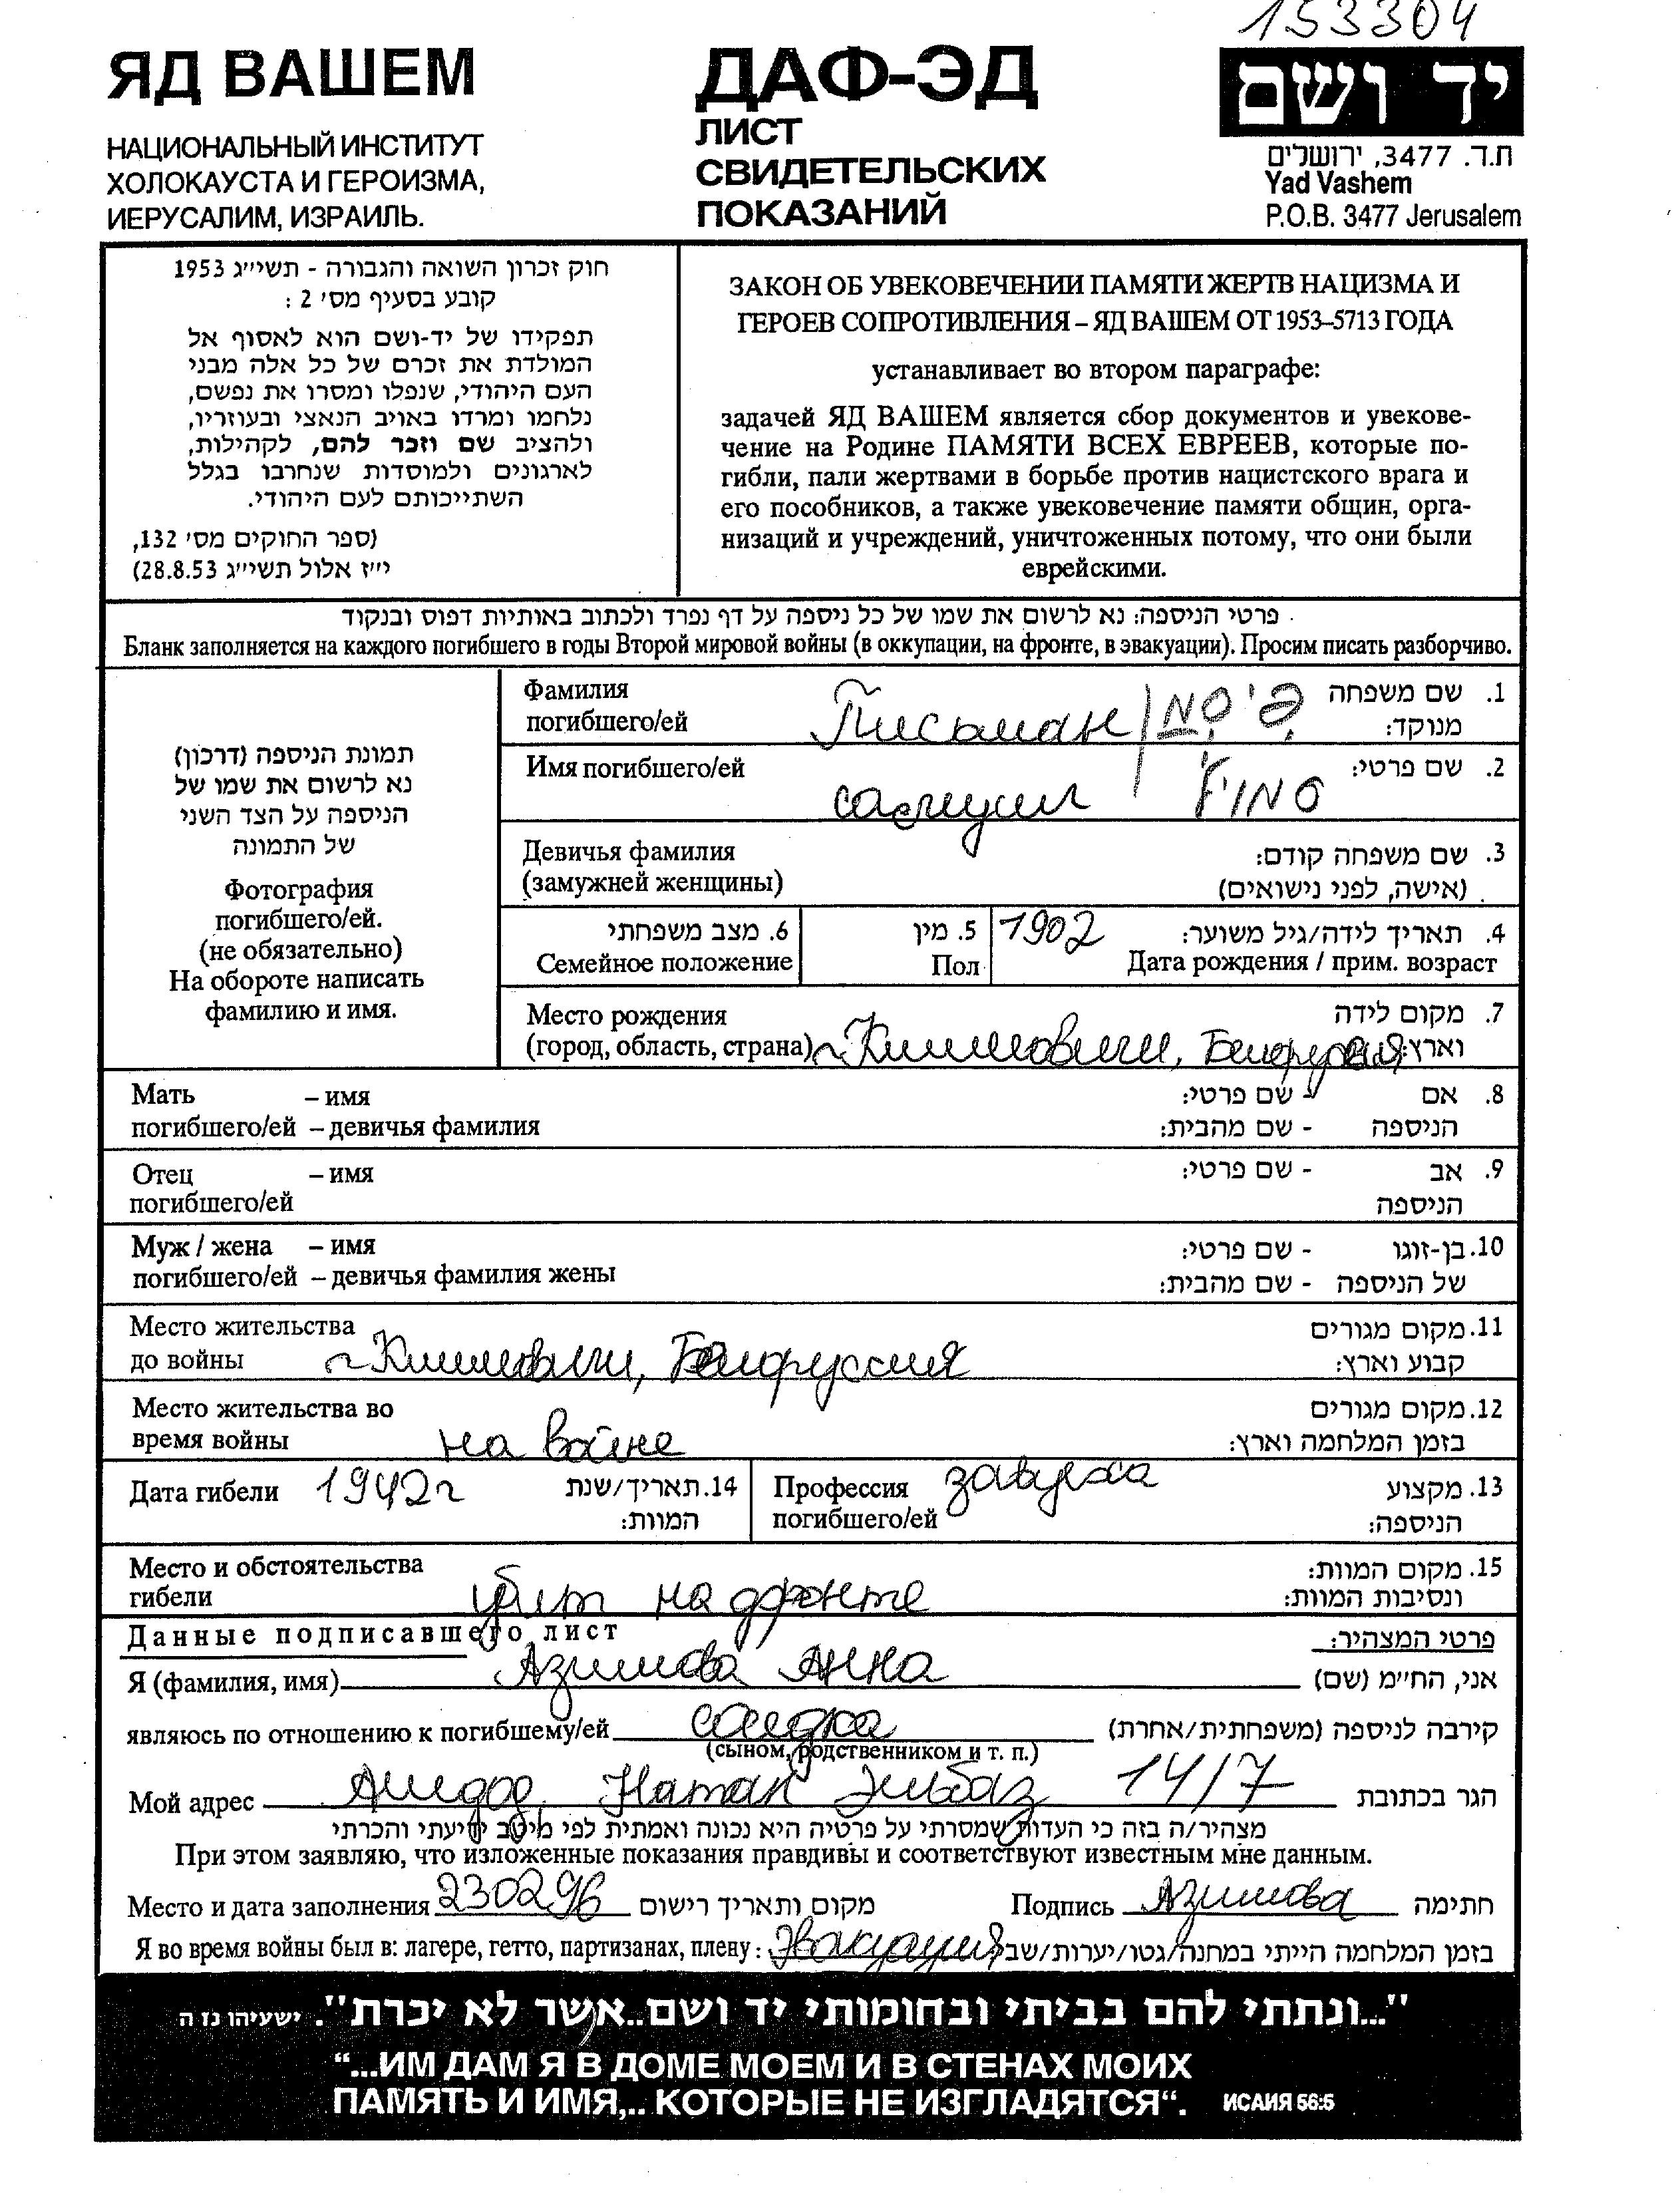 153304
ЯД ВАШЕМ
НАЦИОНАЛЬНЫЙ ИНСТИТУТ
ХОЛОКАУСТА И ГЕРОИЗМА,
ИЕРУСАЛИМ, ИЗРАИЛЬ.
ДАФ-ЭД
ЛИСТ
СВИДЕТЕЛЬСКИХ
ПОКАЗАНИЙ
יד ושם
ת.ד. 3477, ירושלים
Yad Vashem
P.O.B. 3477 Jerusalem
חוק זכרון השואה והגבורה - תשי״ג 1953
קובע בסעיף מס׳ 2 :
תפקידו של יד-ושם הוא לאסוף אל
המולדת את זכרם של כל אלה מבני
העם היהודי, שנפלו ומסרו את נפשם,
נלחמו ומרדו באויב הנאצי ובעוזריו,
ולהציב שם וזכר להם, לקהילות,
לארגונים ולמוסדות שנחרבו בגלל
השתייכותם לעם היהודי.
(ספר החוקים מס׳ 132,
י״ז אלול תשי״ג 28.8.53)
ЗАКОН ОБ УВЕКОВЕЧЕНИИ ПАМЯТИ ЖЕРТВ НАЦИЗМА И
ГЕРОЕВ СОПРОТИВЛЕНИЯ – ЯД ВАШЕМ ОТ 1953–5713 ГОДА
устанавливает во втором параграфе:
задачей ЯД ВАШЕМ является сбор документов и увекове-
чение на Родине ПАМЯТИ ВСЕХ ЕВРЕЕВ, которые по-
гибли, пали жертвами в борьбе против нацистского врага и
его пособников, а также увековечение памяти общин, орга-
низаций и учреждений, уничтоженных потому, что они были
еврейскими.
פרטי הניספה: נא לרשום את שמו של כל ניספה על דף נפרד ולכתוב באותיות דפוס ובנקוד
Бланк заполняется на каждого погибшего в годы Второй мировой войны (в оккупации, на фронте, в эвакуации). Просим писать разборчиво.
תמונת הניספה (דרכון)
נא לרשום את שמו של
הניספה על הצד השני
של התמונה
Фотография
погибшего/ей.
(не обязательно)
На обороте написать
фамилию и имя.
Фамилия
погибшего/ей Письман 1. שם משפחה
מנוקד:
Имя погибшего/ей самуил 2. שם פרטי:
Девичья фамилия 3. שם משפחה קודם:
(замужней женщины) (אישה, לפני נישואים)
6. מצב משפחתי 5. מין 1902 4. תאריך לידה/גיל משוער:
Семейное положение Пол Дата рождения / прим. возраст
Место рождения 7. מקום לידה
(город, область, страна) г Климовичи, Белоруссия וארץ:
Мать – имя 8. אם - שם פרטי:
погибшего/ей – девичья фамилия הניספה - שם מהבית:
Отец – имя 9. אב - שם פרטי:
погибшего/ей הניספה
Муж / жена – имя 10. בן-זוגו - שם פרטי:
погибшего/ей – девичья фамилия жены של הניספה - שם מהבית:
Место жительства 11. מקום מגורים
до войны г Климовичи, Белоруссия קבוע וארץ:
Место жительства во 12. מקום מגורים
время войны на войне בזמן המלחמה וארץ:
Дата гибели 1942г 14. תאריך/שנת
המוות:
Профессия завуча 13. מקצוע
погибшего/ей הניספה:
Место и обстоятельства 15. מקום המוות:
гибели убит на фронте ונסיבות המוות:
Данные подписавшего лист פרטי המצהיר:
Я (фамилия, имя) Азимова Анна אני, הח״מ (שם)
являюсь по отношению к погибшему/ей соседка קירבה לניספה (משפחתית/אחרת)
(сыном, родственником и т. п.)
Мой адрес Ашдод, Натан Эльбаз 14/7 הגר בכתובת
מצהיר/ה בזה כי העדות שמסרתי על פרטיה היא נכונה ואמתית לפי מיטב ידיעתי והכרתי
При этом заявляю, что изложенные показания правдивы и соответствуют известным мне данным.
Место и дата заполнения 230296 מקום ותאריך רישום Подпись Азимова חתימה
Я во время войны был в: лагере, гетто, партизанах, плену: Эвакуация בזמן המלחמה הייתי במחנה/גטו/יערות/שבי
"...ונתתי להם בביתי ובחומותי יד ושם..אשר לא יכרת". ישעיהו נו ה
“...ИМ ДАМ Я В ДОМЕ МОЕМ И В СТЕНАХ МОИХ
ПАМЯТЬ И ИМЯ,.. КОТОРЫЕ НЕ ИЗГЛАДЯТСЯ“. ИСАИЯ 56:5